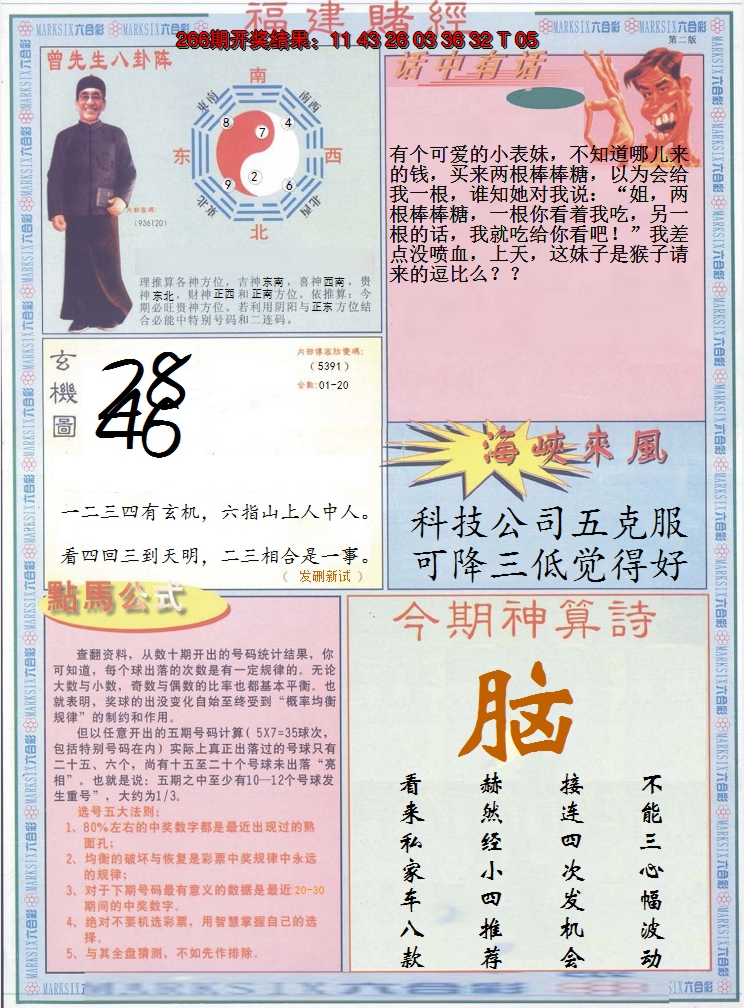 福建賭經
266期开奖结果：11 43 26 03 36 32 T 05
第二版
MARKSIX六合彩
曾先生八卦阵
南
东南
南西
8
7
4
东
西
9
2
6
东北
北西
北
内部密碼:
(936120)
理推算各神方位，吉神东南，喜神西南，贵
神东北，财神正西和正南方位。依推算：今
期必旺贵神方位。若利用阴阳与正东方位结
合必能中特别号码和二连码。
话中有话
有个可爱的小表妹，不知道哪儿来
的钱，买来两根棒棒糖，以为会给
我一根，谁知她对我说：“姐，两
根棒棒糖，一根你看着我吃，另一
根的话，我就吃给你看吧！”我差
点没喷血，上天，这妹子是猴子请
来的逗比么？？
玄機圖
28
46
(5391)
合数:01-20
一二三四有玄机，六指山上人中人。
看四回三到天明，二三相合是一事。
（ 发删新试 ）
海峽來風
科技公司五克服
可降三低觉得好
點馬公式
查翻资料，从数十期开出的号码统计结果，你
可知道，每个球出落的次数是有一定规律的。无论
大数与小数，奇数与偶数的比率也都基本平衡。也
就表明，奖球的出没变化自始至终受到“概率均衡
规律”的制约和作用。
但以任意开出的五期号码计算( 5X7=35球次，
包括特别号码在内) 实际上真正出落过的号球只有
二十五、六个，尚有十五至二十个号球未出落“亮
相”。也就是说：五期之中至少有10—12个号球发
生重号”，大约为1/3。
选号五大法则：
1、80%左右的中奖数字都是最近出现过的熟
面孔；
2、均衡的破坏与恢复是彩票中奖规律中永远
的规律；
3、对于下期号码最有意义的数据是最近20-30
期间的中奖数字。
4、绝对不要机选彩票，用智慧掌握自己的选
择。
5、与其全盘猜测，不如先作排除。
今期神算詩
脑
不能三心幅波动
接连四次发机会
赫然经小四推荐
看来私家车八款